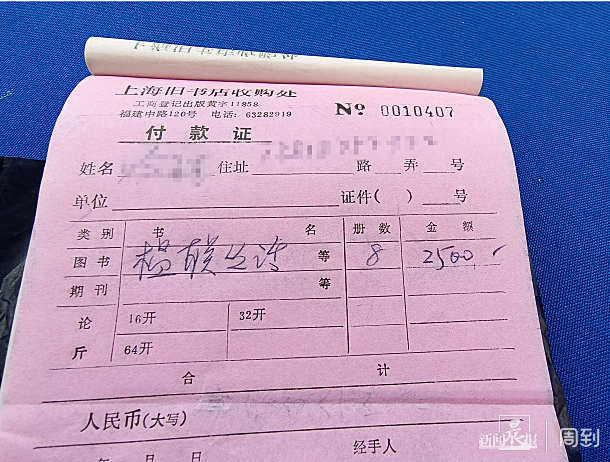 上海旧书店收购处
工商登记出版黄字11858
福建中路120号 电话: 63282919
No 0010407
付款证
姓名 住址 路 弄 号
单位 证件( ) 号
类别 书 名 册数 金额
图书 楹联丛话 等 8 2500
期刊 等
论 16开 32开
斤 64开
合 计
人民币(大写)
年 月 日 经手人
新闻晨报 周到